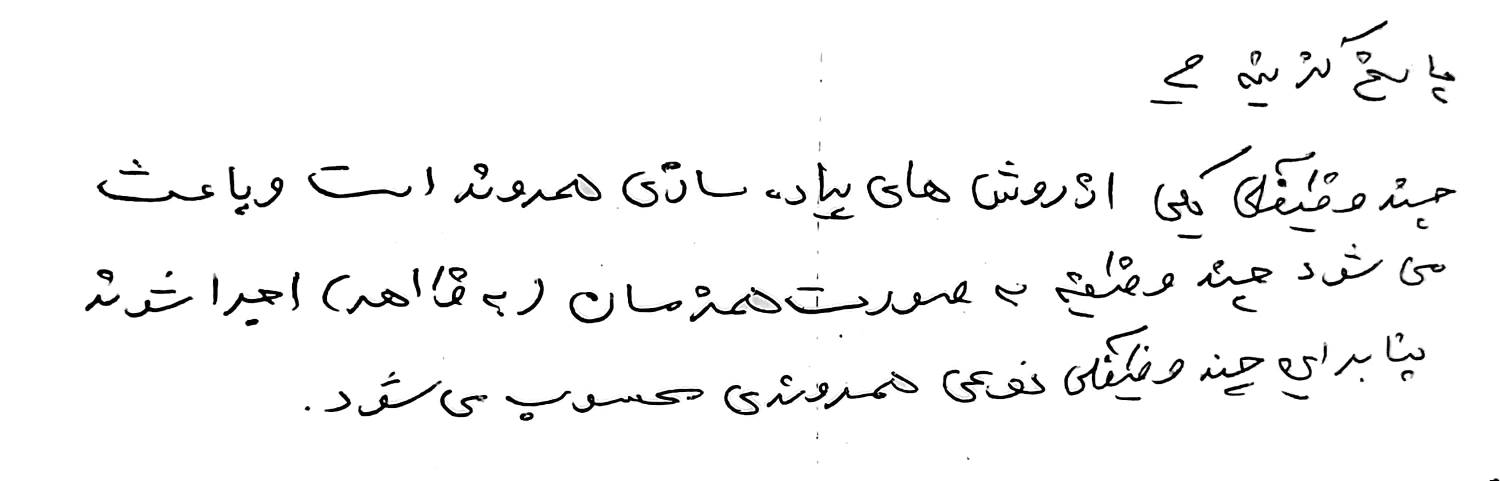 پاسخ گزینه ج
چند وظیفگی یکی از روش های پیاده سازی همروند است و باعث
می شود چند وظیفه به صورت همزمان (به ظاهر) اجرا شوند
بنابراین چند وظیفگی نوعی همروندی محسوب می شود.